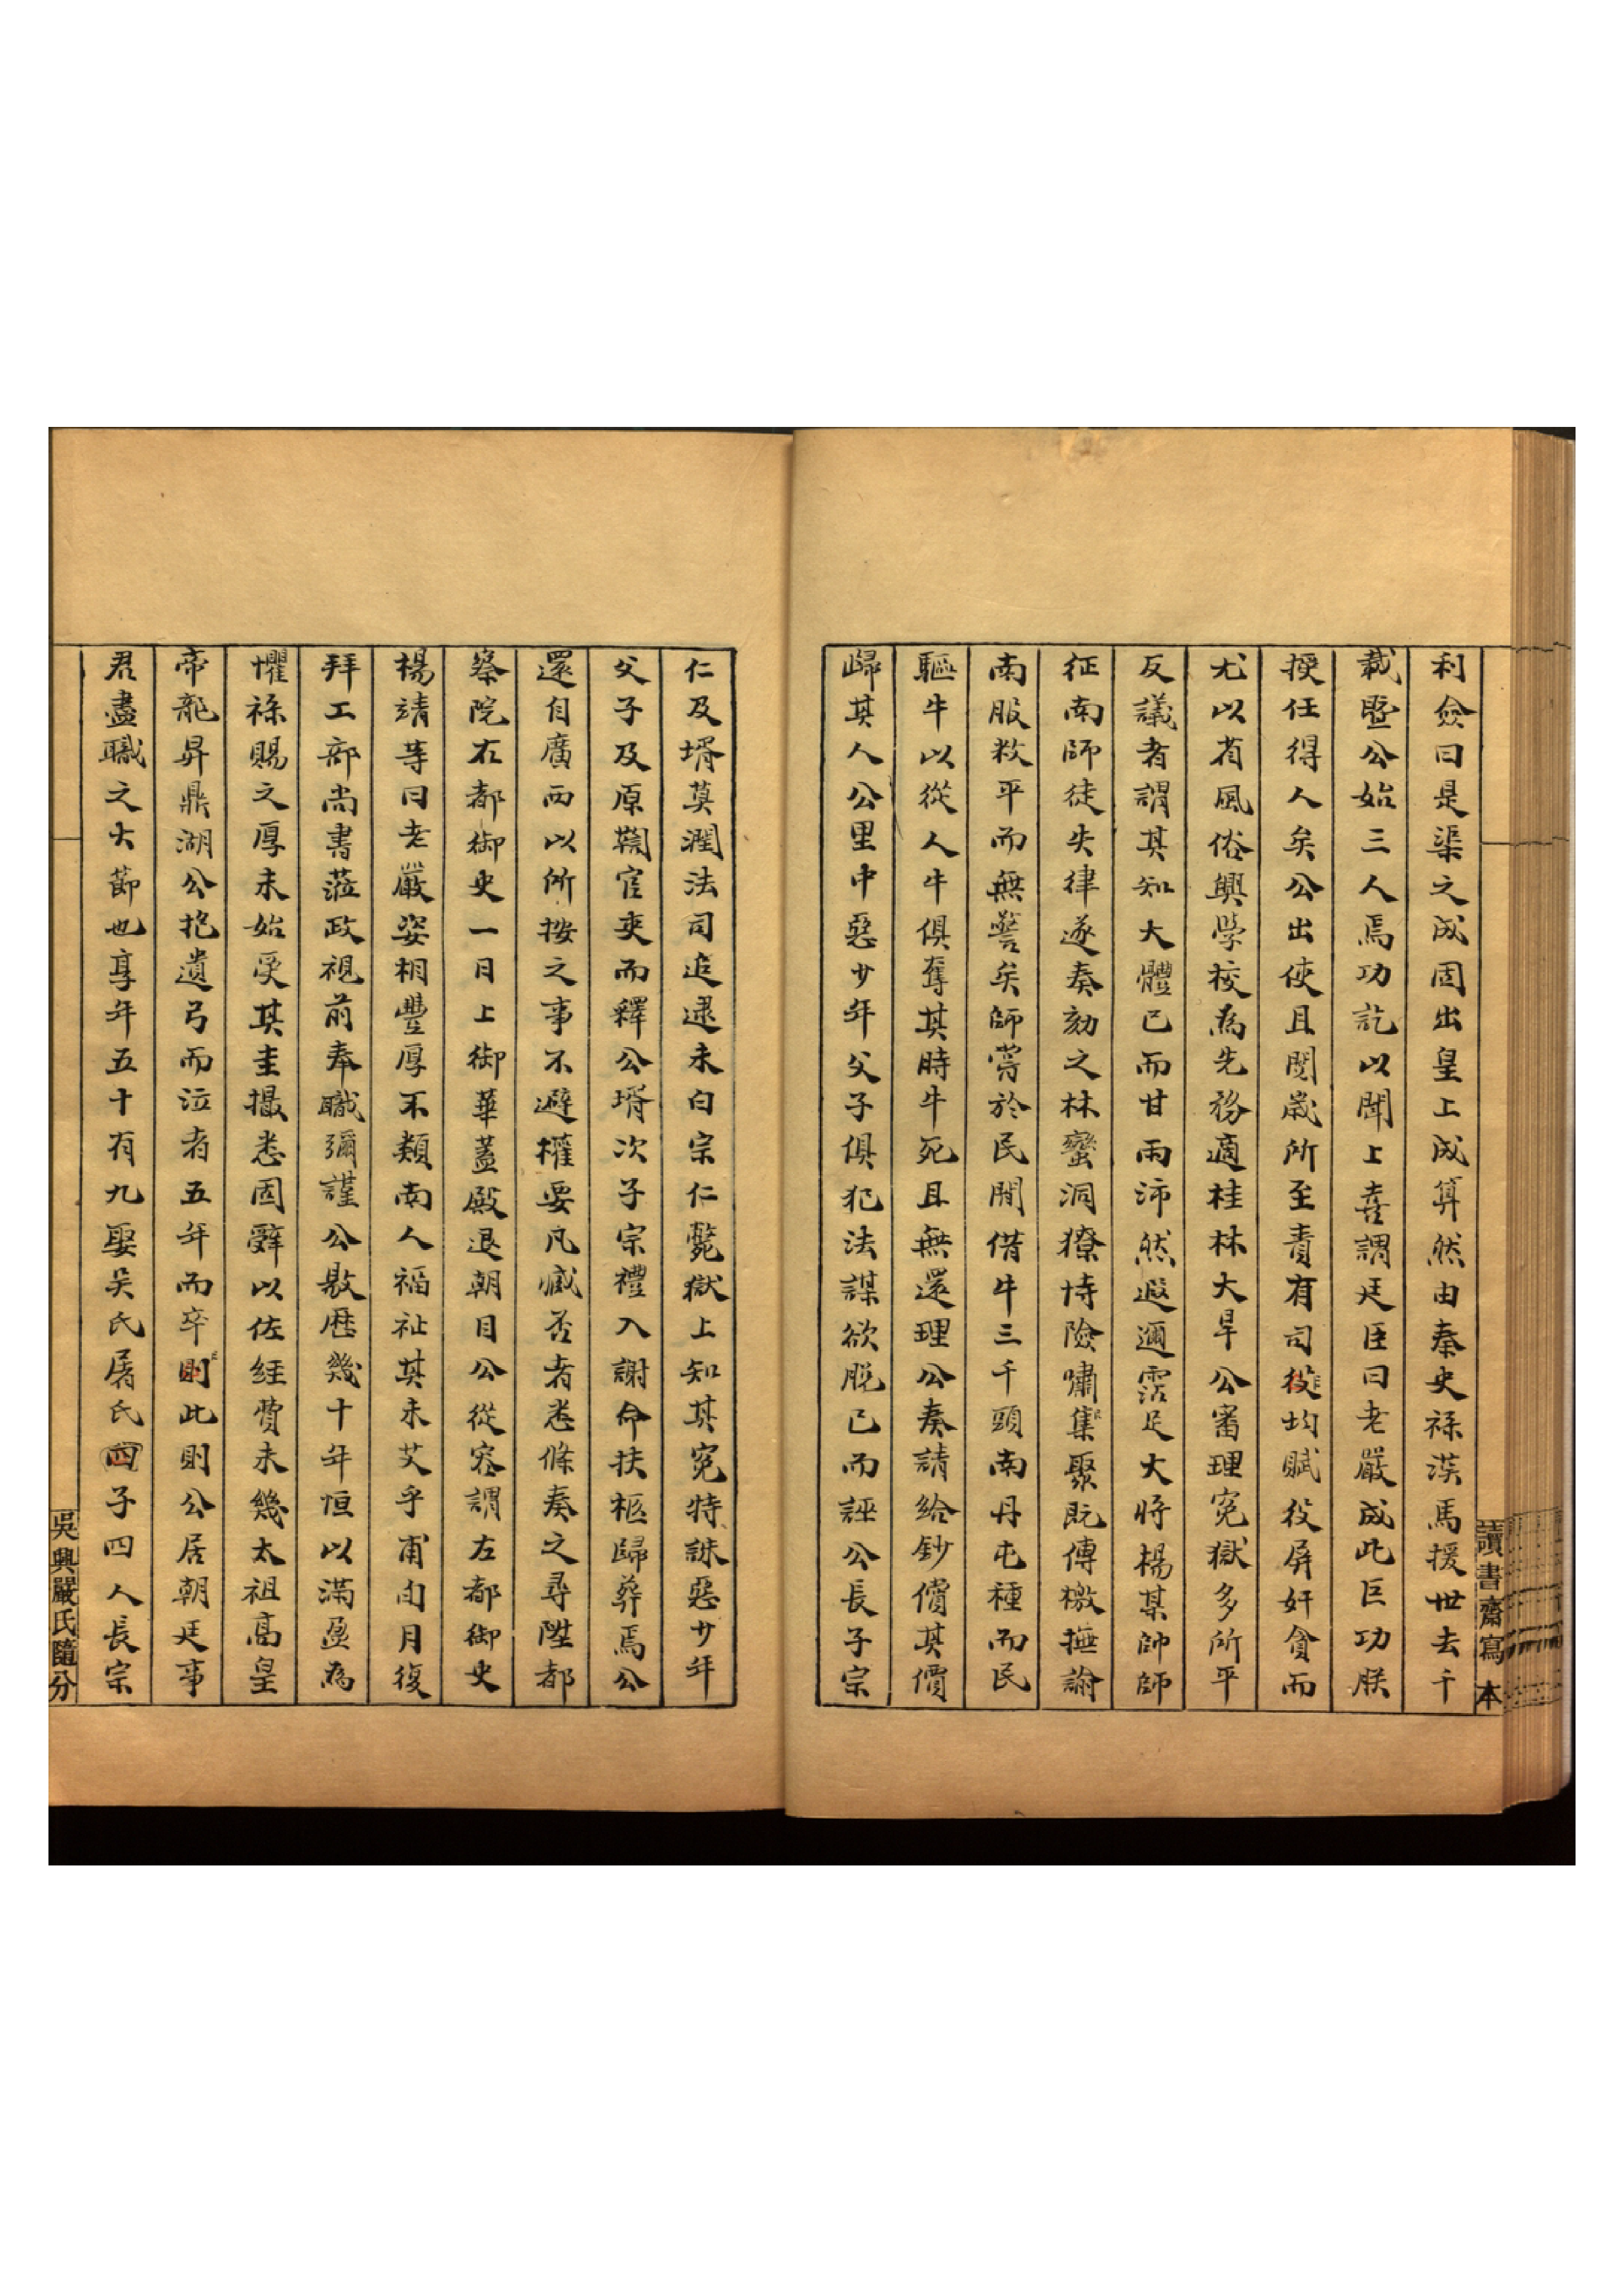 讀書齋寫本
利僉曰是渠之成固出皇上成算然由秦史祿漢馬援世去千
載暨公始三人焉功訖以聞上喜謂廷臣曰老嚴成此巨功朕
授任得人矣公出使且閱歲所至責有司役均賦役屏奸貪而
尤以省風俗興學校為先務適桂林大旱公審理冤獄多所平
反議者謂其知大體已而甘雨沛然遐邇霑足大將楊某帥師
征南師徒失律遂奏劾之林蠻洞獠恃險嘯集聚既傳檄撫諭
南服敉平而無警矣師嘗於民間借牛三千頭南丹屯種而民
驅牛以從人牛俱奪其時牛死且無還理公奏請給鈔償其價
歸其人公里中惡少年父子俱犯法謀欲脫已而誣公長子宗
仁及壻莫潤法司追逮未白宗仁斃獄上知其冤特誅惡少年
父子及原鞫官吏而釋公壻次子宗禮入謝命扶柩歸葬焉公
還自廣西以所按之事不避權要凡臧否者悉條奏之尋陞都
察院右都御史一日上御華蓋殿退朝目公從容謂左都御史
楊靖等曰老嚴姿相豐厚不類南人福祉其未艾乎甫閱月復
拜工部尚書蒞政視前奉職彌謹公敭歷幾十年恒以滿盈為
懼祿賜之厚未始受其圭撮悉固辭以佐經費未幾太祖高皇
帝龍昇鼎湖公抱遺弓而泣者五年而卒則此則公居朝廷事
君盡職之大節也享年五十有九娶吳氏屠氏四子四人長宗
吳興嚴氏隨分